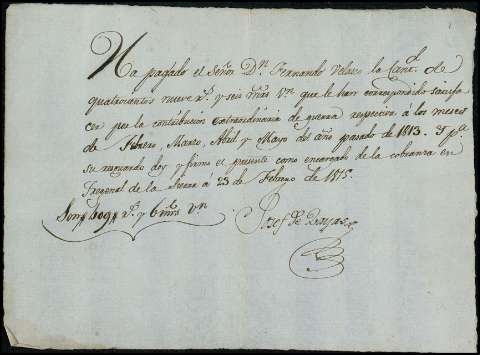 Ha pagado el Señor Dn. Fernando Velasco la Cantd. de
quatrocientos nueve rs. y seis mrs. Vn. que le han correspondido satisfa
cer por la contribucion extraordinaria de guerra respectiva á los meses
de Febrero, Marzo, Abril y Mayo del año pasado de 1813. Y pa.
su resguardo doy y firmo el presente como encargado de la cobranza en
Fregenal de la Sierra á 23 de Febrero de 1815.
Son 409 rs. y 6 mrs. vn.
Josef de